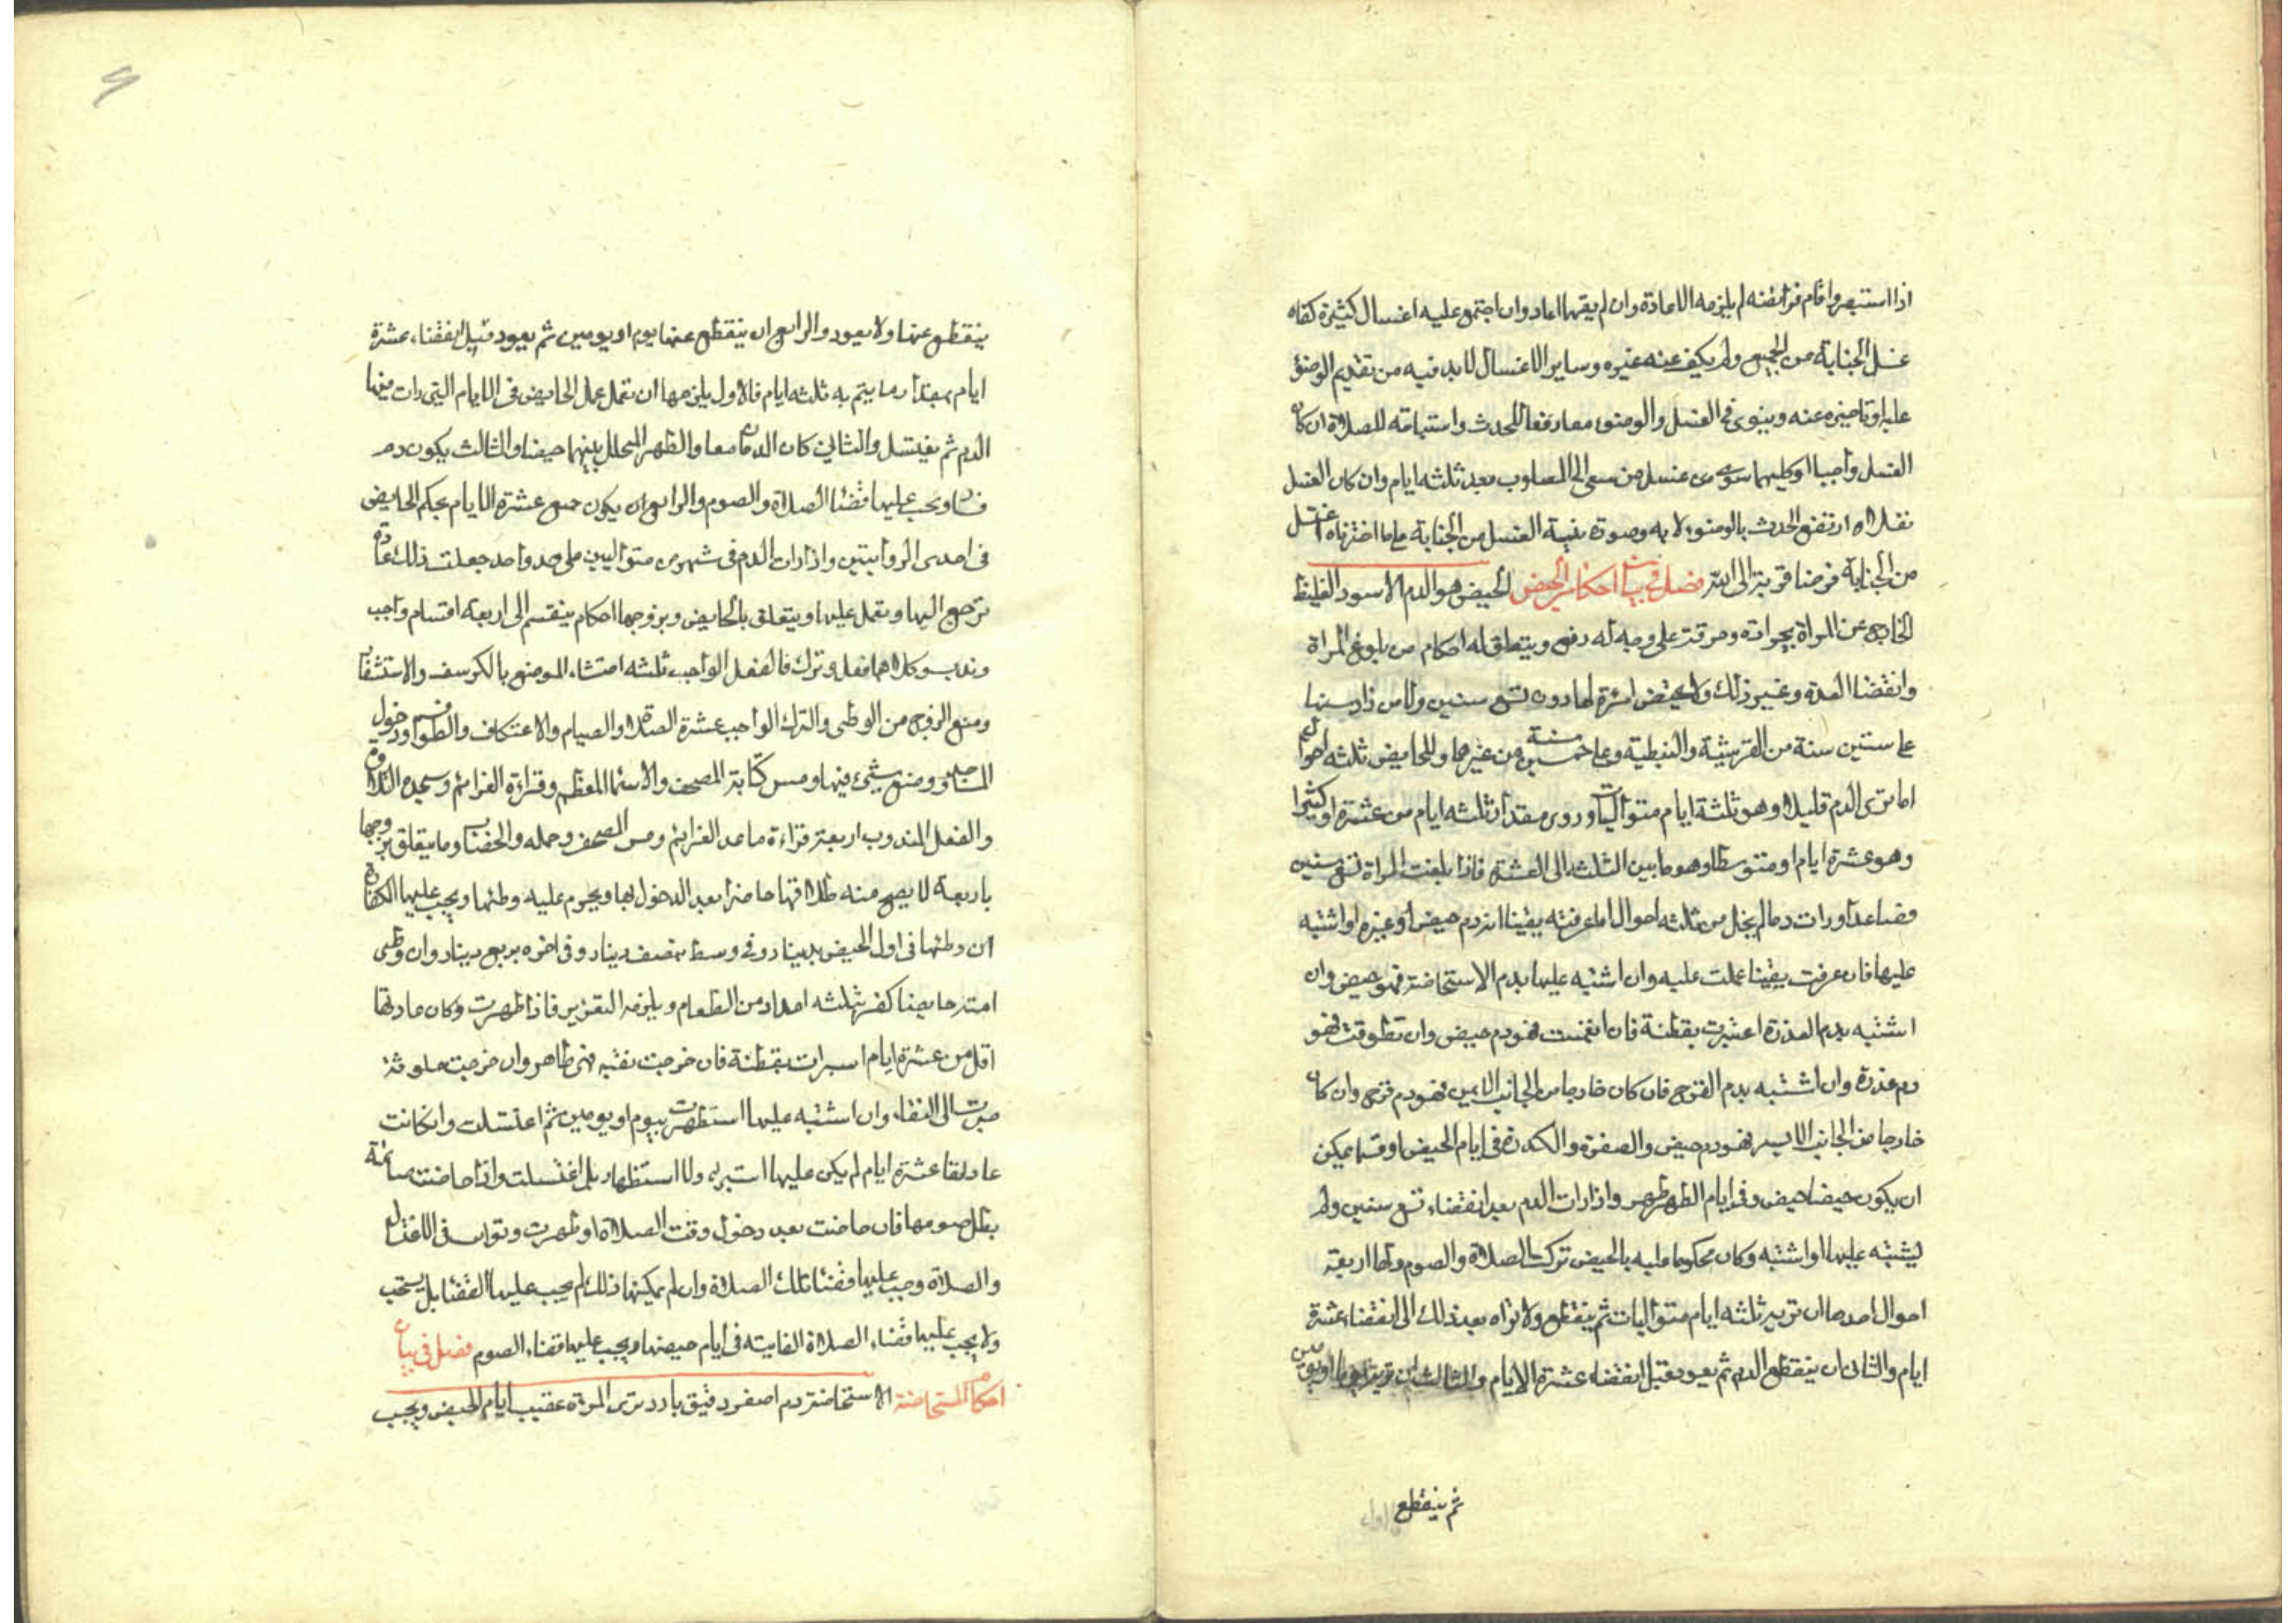 اذا استبصر واقام فرائضه لم يلزمه الاعادة وان لم يقمها اعاد وان اجتمع عليه اغسال كثيرة كفاه
غسل الجنابة من الجميع ولم يكف عنه غيره وساير الاغسال لا بد فيه من تقديم الوضوء
عليه او تاخيره عنه وينوى فى الغسل والوضوء معا رفعا للحدث واستباحة للصلاة ان كان
الغسل واجبا او كليهما سوى من غسل من سعى الى المصلوب بعد ثلثه ايام وان كان الغسل
نفلا ارتفع الحدث بالوضوء لا به وصورة نية الغسل من الجنابة على ما اخترناه اغتسل
من الجنابة فرضا قربة الى الله فصل فى بيان احكام الحيض الحيض هو الدم الاسود الغليظ
الخارج من المراة بحرارة وحرقة على وجه له دفع ويتعلق له احكام من بلوغ المراة
وانقضا العدة وغير ذلك ولا تحيض امرة لها دون تسع سنين ولا من زاد سنها
على ستين سنة من القرشية والنبطية وعلى خمسين سنة من غيرهما وللحايض ثلثه احوال
اما ترى الدم قليلا وهو ثلثة ايام متواليات وروى مقدار ثلثه ايام من عشرة او كثيرا
وهو عشرة ايام او متوسطا وهو ما بين الثلثه الى العشرة فاذا بلغت المراة تسع سنين
فصاعدا ورات دما لم يخل من ثلثه احوال اما عرفته يقينا انه دم حيض او غيره او اشتبه
عليها فان عرفت يقينا عملت عليه وان اشتبه عليها بدم الاستحاضة فهو حيض وان
اشتبه بدم العذرة اعتبرت بقطنة فان انغمست فهو دم حيض وان تطوقت فهو
دم عذرة وان اشتبه بدم القرح فان كان خارجا من الجانب الايمن فهو دم قرح وان كان
خارجا من الجانب الايسر فهو دم حيض والصفرة والكدرة فى ايام الحيض او فيما يمكن
ان يكون حيضا حيض وفى ايام الطهر طهر واذا رات الدم بعد انقضاء تسع سنين ولم
يشتبه عليها او اشتبه وكان محكوما عليه بالحيض تركت الصلاة والصوم ولها اربعة
احوال احدها ان ترى ثلثه ايام متواليات ثم ينقطع ولا تراه بعد ذلك الى انقضاء عشرة
ايام والثانى ان ينقطع الدم ثم يعود قبل انقضاء عشرة الايام والثالث ان ترى يوما او يومين
ثم ينقطع
ينقطع عنها ولا يعود والرابع ان ينقطع عنها يوم او يومين ثم يعود قبل انقضاء عشرة
ايام بمقدار ما يتم به ثلثه ايام فالاول يلزمها ان تعمل عمل الحايض فى الايام التى رات فيها
الدم ثم تغتسل والثانى كان الدمان معا والطهر المتخلل بينهما حيضا والثالث يكون دم
فساد ويجب عليها قضا الصلاة والصوم والرابع ان يكون جميع عشرة الايام بحكم الحايض
فى احدى الروايتين واذا رات الدم فى شهرين متواليين على حد واحد جعلت ذلك عادة
ترجع اليها وتعمل عليها ويتعلق بالحايض وبزوجها احكام ينقسم الى اربعة اقسام واجب
وندب وكلاهما فعل وترك فالفعل الواجب ثلثه احتشاء الموضع بالكرسف والاستثفار
ومنع الزوج من الوطى والترك الواجب عشرة الصلاة والصيام والاعتكاف والطواف ودخول
المساجد ووضع شىء فيها ومس كتابة المصحف والاسما المعظم وقراءة العزائم وسجدة التلاوة
والفعل المندوب اربعة قراءة ما عدا العزائم ومس المصحف وحمله والخضاب وما يتعلق بزوجها
باربعة لا يصح منه طلاقها حاضرا بعد الدخول بها ويحرم عليه وطئها ويجب عليها الكفارة
ان وطئها فى اول الحيض بدينار وفى وسطه بنصف دينار وفى اخره بربع دينار وان وطى
امته حايضا كفر بثلثه امداد من الطعام ويلزمه التعزير فاذا طهرت وكان عادتها
اقل من عشرة ايام استبرات بقطنة فان خرجت نقيه فهى طاهر وان خرجت ملوثة
صبرت الى النقاء وان اشتبه عليها استظهرت بيوم او يومين ثم اغتسلت وان كانت
عادتها عشرة ايام لم يكن عليها استبراء ولا استظهار بل اغتسلت واذا حاضت صائمة
بطل صومها فان حاضت بعد دخول وقت الصلاة او طهرت وتوانت فى الاغتسال
والصلاة وجب عليها قضا تلك الصلاة وان لم يمكنها ذلك لم يجب عليها القضا بل يستحب
ولا يجب عليها قضاء الصلاة الفايتة فى ايام حيضها ويجب عليها قضاء الصوم فصل فى بيان
احكام المستحاضة الاستحاضة دم اصفر رقيق بارد ترى المرءة عقيب ايام الحيض ويجب